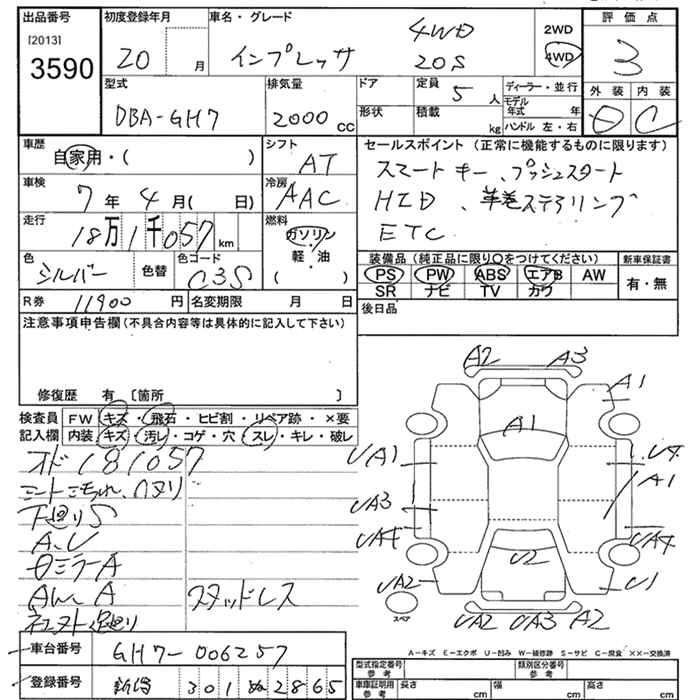 出品番号 初度登録年月 車名・グレード 2WD 評価点
[2013] 20 月 インプレッサ 4WD 20S 4WD 3
3590
型式 排気量 ドア 定員 ディーラー・並行 外装 内装
DBA-GH7 2000 CC 5 人 モデル年式 年 D C
形状 積載 kg ハンドル 左・右
車歴 自家用・( ) シフト AT セールスポイント (正常に機能するものに限ります)
車検 7 年 4 月 ( 日) 冷房 AAC スマートキー、プッシュスタート
HID、革巻ステアリング
走行 18万1千057 km 燃料 ガソリン・軽・油 ( ) ETC
色 シルバー 色替 色コード C3S 装備品 (純正品に限り○をつけてください) 新車保証書
PS PW ABS エアB AW 有・無
SR ナビ TV カワ
R券 11900 円 名変期限 月 日 後日品
注意事項申告欄 (不具合内容等は具体的に記入して下さい)
修復歴 有 〔箇所 〕
検査員 FW キズ・飛石・ヒビ割・リペア跡・×要
記入欄 内装 キズ・汚レ・コゲ・穴・スレ・キレ・破レ
オド181057
下廻りS
A.C
ロミラーA
スタッドレス
A2 A3
A1
A1
UA1 U4
A1
UA3
UA4 UA4
U2
UA2 U1
スペア UA2 UA3 A2
A-キズ E-エクボ U-凹み W-補修跡 S-サビ C-腐食 ××-交換済
車台番号 GH7-006257
登録番号 新潟 301 ぬ 2865
型式指定番号 参考 類別区分番号 参考
車庫証明用 参考 長さ cm 幅 cm 高さ cm